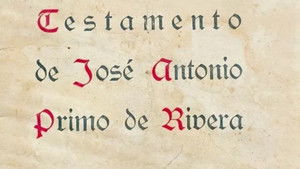 Testamento
de José Antonio
Primo de Rivera